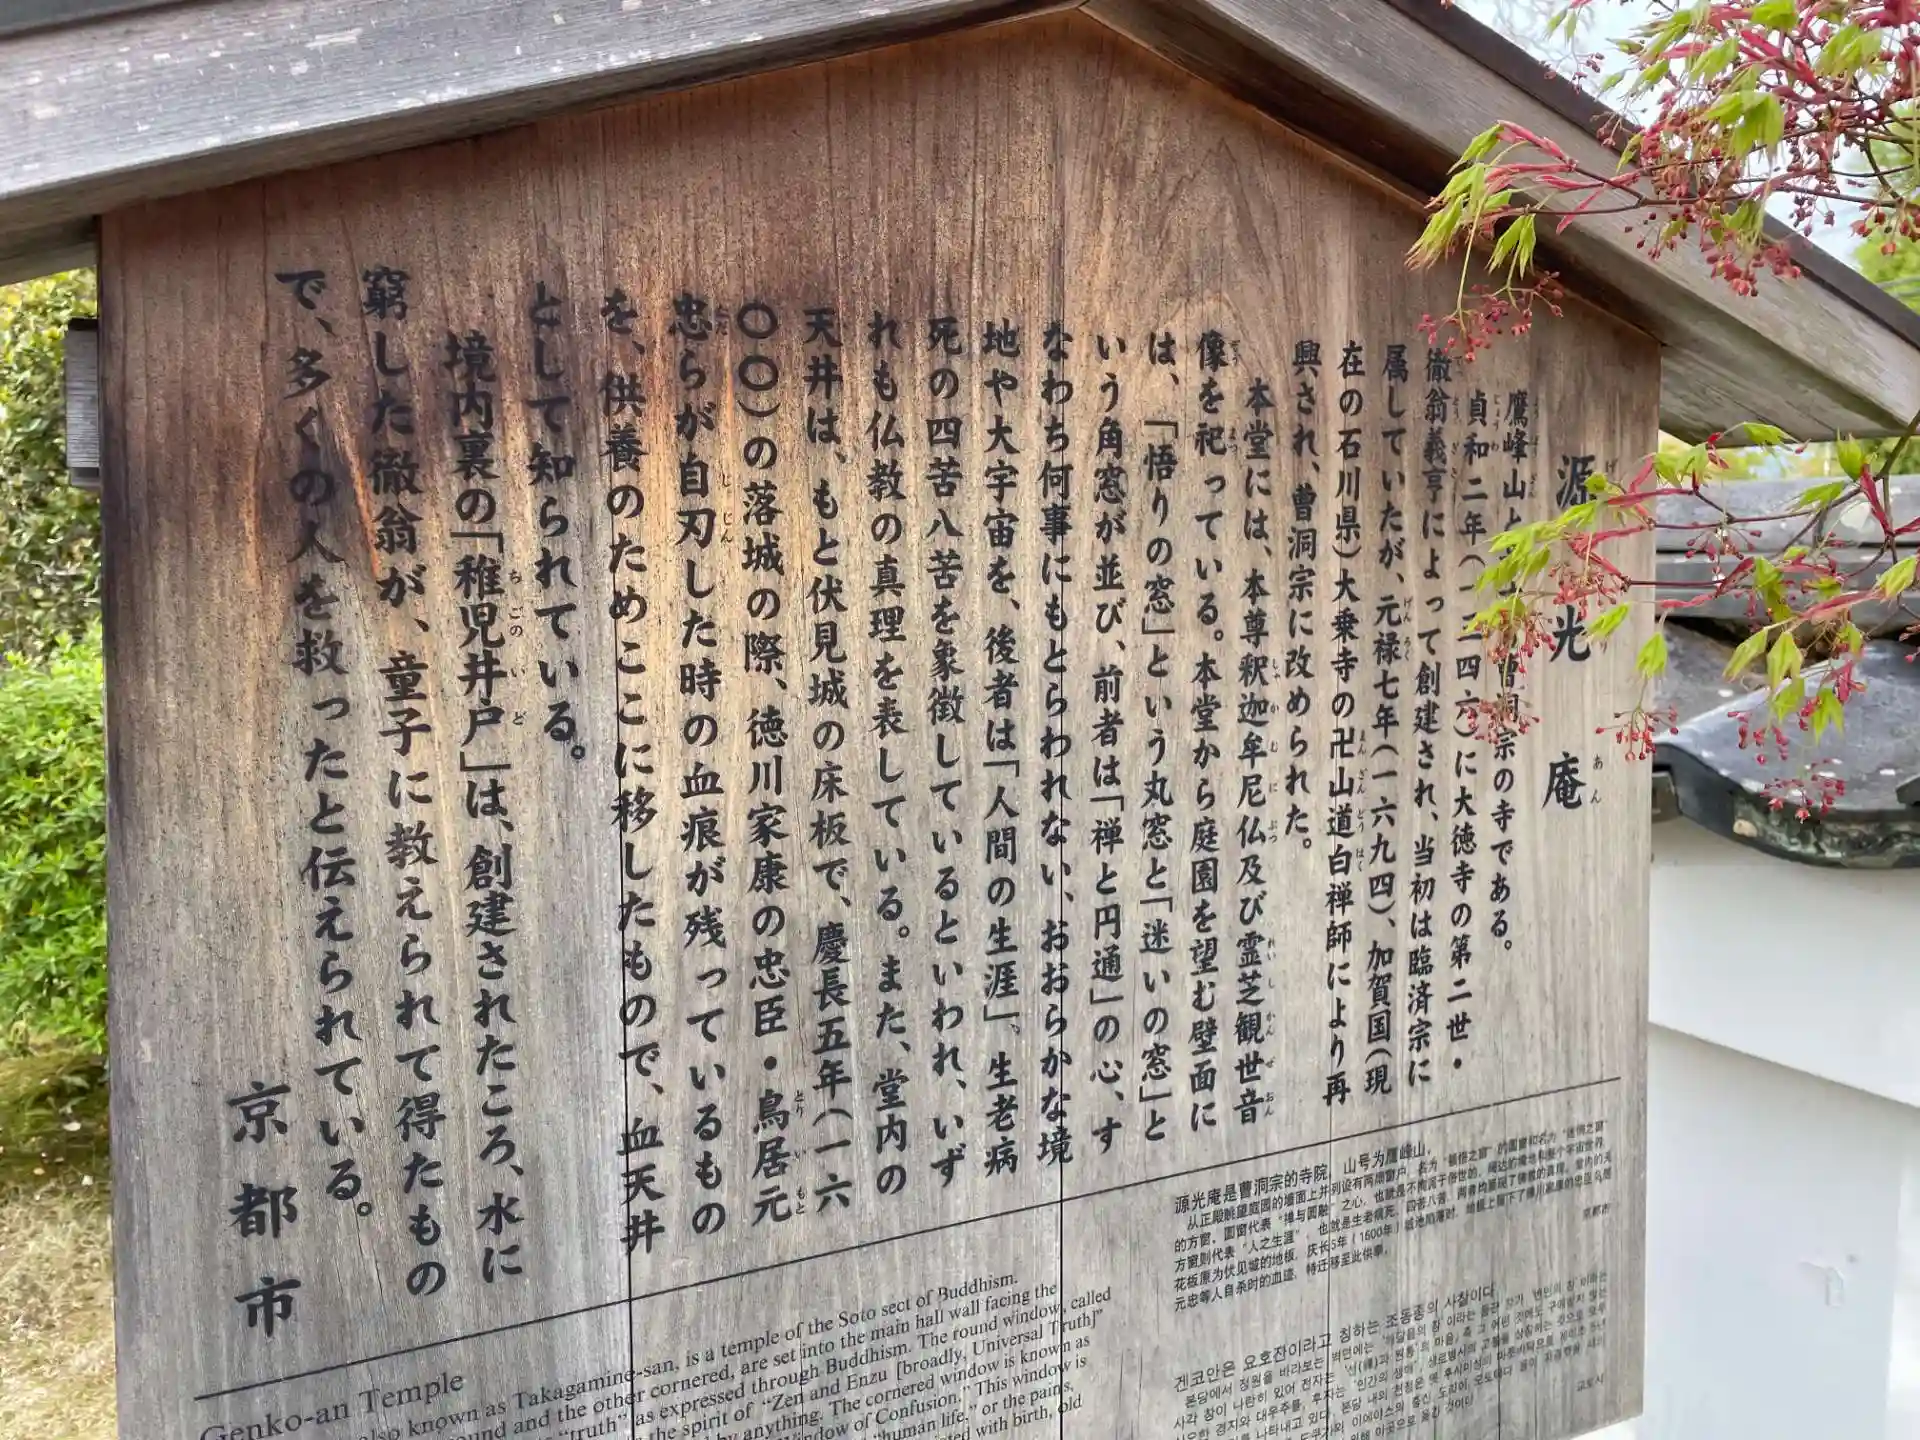 源光庵
鷹峰山と
曹洞宗の寺である。
貞和二年(一三四六)に大徳寺の第二世・
徹翁義亨によって創建され、当初は臨済宗に
属していたが、元禄七年(一六九四)、加賀国(現
在の石川県)大乗寺の卍山道白禅師により再
興され、曹洞宗に改められた。
本堂には、本尊釈迦牟尼仏及び霊芝観世音
像を祀っている。本堂から庭園を望む壁面に
は、「悟りの窓」という丸窓と「迷いの窓」と
いう角窓が並び、前者は「禅と円通」の心、す
なわち何事にもとらわれない、おおらかな境
地や大宇宙を、後者は「人間の生涯」、生老病
死の四苦八苦を象徴しているといわれ、いず
れも仏教の真理を表している。また、堂内の
天井は、もと伏見城の床板で、慶長五年(一六
〇〇)の落城の際、徳川家康の忠臣・鳥居元
忠らが自刃した時の血痕が残っているもの
を、供養のためここに移したもので、血天井
として知られている。
境内裏の「稚児井戸」は、創建されたころ、水に
窮した徹翁が、童子に教えられて得たもの
で、多くの人を救ったと伝えられている。
京都市
Genko-an Temple
also known as Takagamine-san, is a temple of the Soto sect of Buddhism.
and the other cornered, are set into the main hall wall facing the
"truth" as expressed through Buddhism. The round window, called
the spirit of "Zen and Enzu [broadly, Universal Truth]"
by anything. The cornered window is known as
Window of Confusion." This window is
"human life," or the pains,
with birth, old
源光庵是曹洞宗的寺院，山号为鹰峰山，
从正殿眺望庭园的墙面上并列设有两扇窗户，名为"顿悟之窗"的圆窗和名为"迷惘之窗"
的方窗。圆窗代表"禅与圆融"之心，也就是不拘泥于俗世的、阔达的境地和整个宇宙世界，
方窗则代表"人之生涯"，也就是生老病死、四苦八苦，两者均展现了佛教的真理。堂内的天
花板原为伏见城的地板，庆长5年（1600年）城池陷落时，地板上留下了德川家康的忠臣鸟居
元忠等人自杀时的血迹，特迁移至此供奉。
京都市
겐코안은 요호잔이라고 칭하는 조동종의 사찰이다.
본당에서 정원을 바라보는 벽면에는
교토시